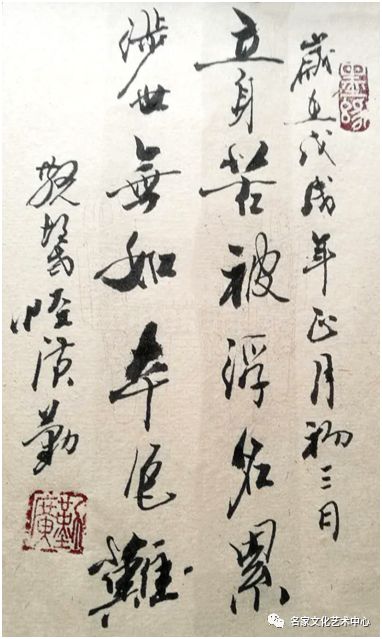 歲在戊戌年正月初三日
立身苦被浮名累
涉世無如本色難
勤
名家文化艺术中心